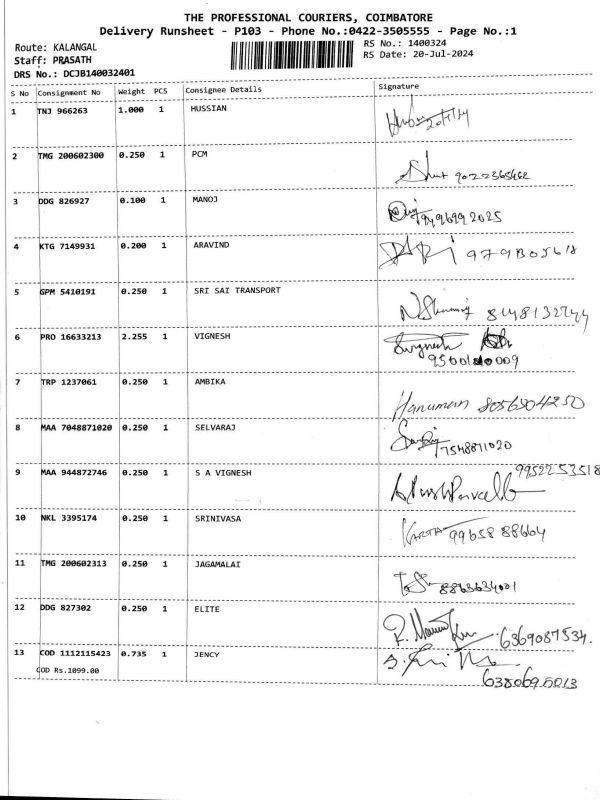 THE PROFESSIONAL COURIERS, COIMBATORE
Delivery Runsheet - P103 - Phone No.:0422-3505555 - Page No.:1
Route: KALANGAL
RS No.: 1400324
Staff: PRASATH
RS Date: 20-Jul-2024
DRS No.: DCJB140032401
S No Consignment No Weight PCS Consignee Details Signature
1 TNJ 966263 1.000 1 HUSSIAN
2 TMG 200602300 0.250 1 PCM 9022365462
3 DDG 826927 0.100 1 MANOJ
4 KTG 7149931 0.200 1 ARAVIND
5 GPM 5410191 0.250 1 SRI SAI TRANSPORT
6 PRO 16633213 2.255 1 VIGNESH
7 TRP 1237061 0.250 1 AMBIKA Hanuman 8056304250
8 MAA 7048871020 0.250 1 SELVARAJ 7548871020
9 MAA 944872746 0.250 1 S A VIGNESH 9952253518
10 NKL 3395174 0.250 1 SRINIVASA 99658 88664
11 TMG 200602313 0.250 1 JAGAMALAI
12 DDG 827302 0.250 1 ELITE 6369087534.
13 COD 1112115423 0.735 1 JENCY
COD Rs.1099.00
6380695013